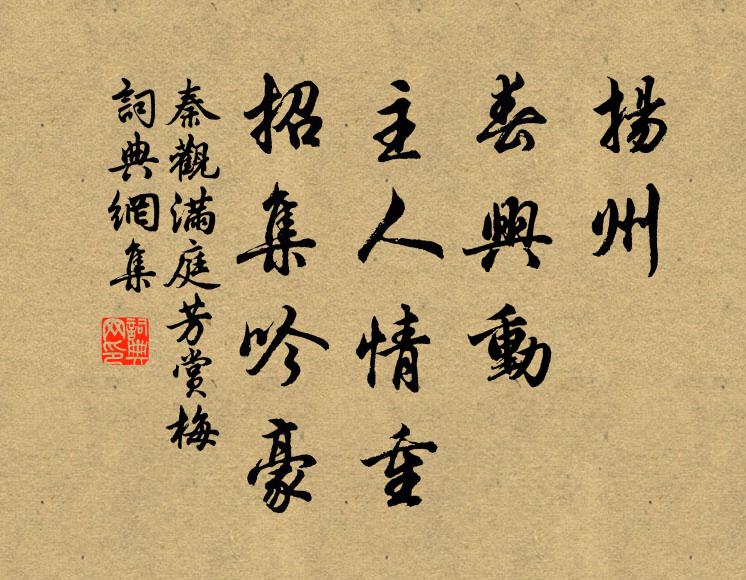 揚州
春興動
主人情重
招集吟豪
秦觀滿庭芳賞梅
詞典網集
詞典網印